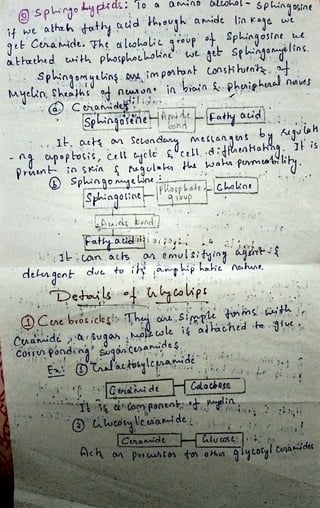 ② Sphingolypids: To a amino alcohol - Sphingosine
if we attach fatty acid through amide linkage we
get Ceramide. The alcoholic group of Sphingosine we
attached with phosphocholine we get Sphingomyelins.
Sphingomyelins are important constituents of
Myelin Sheaths of neurons in brain & Pheripheral nerves
ⓐ Ceramides
Sphingosine Amide bond Fatty acid
It acts as secondary messangers by regulati
-ng apoptosis, cell cycle & cell differentiating. It is
present in skin & regulates the water permeability.
ⓑ Sphingomyeline:
Sphingosine Phosphate group Choline
Amide bond
Fatty acid
It can acts as emulsifying agent &
detergent due to its amphiphatic nature
Details of Glycolips
① Cerebrosides: They are simple forms with
Ceramide, a sugar molecule is attached to give
corresponding sugar ceramides.
Ex: ① Galactosylceramide
Ceramide Galactose
It is a component of myelin
② Glucosylceramide
Ceramide Glucose
Act as precursor for other glycosyl ceramides